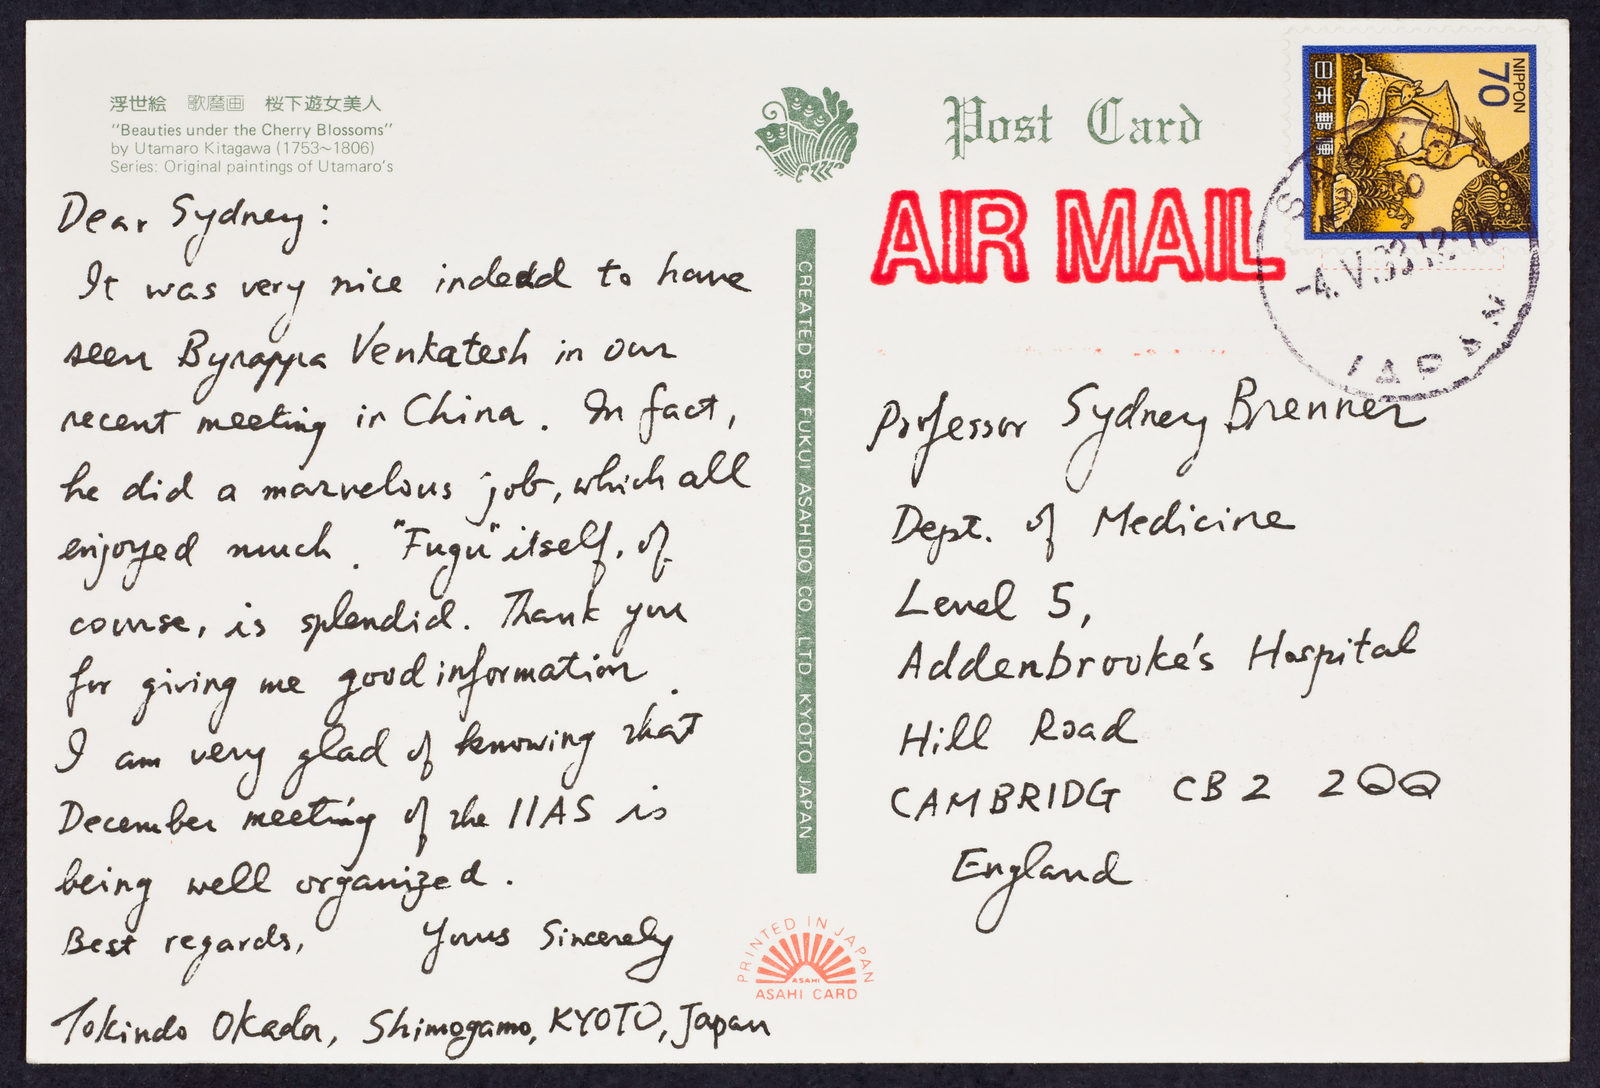 浮世絵 歌麿画 桜下遊女美人
"Beauties under the Cherry Blossoms"
by Utamaro Kitagawa (1753~1806)
Series: Original paintings of Utamaro's
Dear Sydney:
It was very nice indeed to have
seen Byrappa Venkatesh in our
recent meeting in China. In fact,
he did a marvelous job, which all
enjoyed much. "Fugu" itself, of
course, is splendid. Thank you
for giving me good information.
I am very glad of knowing that
December meeting of the IIAS is
being well organized.
Best regards, Yours Sincerely
Tokindo Okada, Shimogamo, KYOTO, Japan
CREATED BY FUKUI ASAHIDO CO., LTD. KYOTO JAPAN
PRINTED IN JAPAN
ASAHI
ASAHI CARD
Post Card
AIR MAIL
NIPPON
70
日本郵便
-4.V.93.12-18
JAPAN
Professor Sydney Brenner
Dept. of Medicine
Level 5,
Addenbrooke's Hospital
Hill Road
CAMBRIDG CB2 2QQ
England